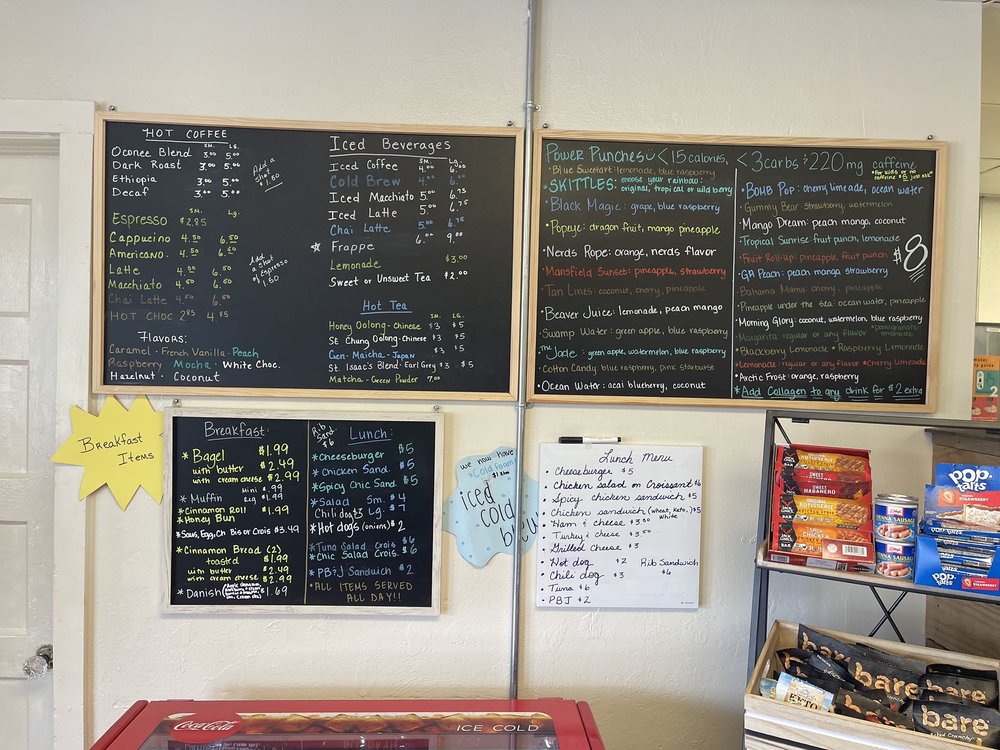 HOT COFFEE
SM. LG.
Oconee Blend 3.00 5.00
Dark Roast 3.00 5.00
Ethiopia 3.00 5.00
Decaf 3.00 5.00
Add a shot 1.50
SM. Lg.
Espresso $2.85
Cappucino 4.50 6.50
Americano 4.50 6.50
Latte 4.50 6.50
Macchiato 4.50 6.50
Chai Latte 4.50 6.50
HOT CHOC 2.85 4.85
Add a shot of Espresso 1.50
Flavors:
Caramel · French Vanilla · Peach
Raspberry Mocha · White Choc.
Hazelnut · Coconut
Iced Beverages
SM. LG.
Iced Coffee 4.00 6.00
Cold Brew 4.00 6.00
Iced Macchiato 5.00 6.75
Iced Latte 5.00 6.75
Chai Latte 5.00 6.75
Frappe 6.00 9.00
Lemonade $3.00
Sweet or Unsweet Tea $2.00
Hot Tea
SM. LG.
Honey Oolong - Chinese $3 $5
St Chung Oolong - Chinese $3 $5
Gen-Maicha - Japan $3 $5
St. Isaac's Blend - Earl Grey $3 $5
Matcha - Green Powder 7.00
Power Punches <15 calories, <3 carbs 220 mg caffeine
*For kids or no caffeine $5 just ask*
· Blue Sweetart: lemonade, blue raspberry
· SKITTLES: choose your rainbow: original, tropical or wild berry
· Black Magic: grape, blue raspberry
· Popeye: dragon fruit, mango pineapple
· Nerds Rope: orange, nerds flavor
· Mansfield Sunset: pineapple, strawberry
· Tan Lines: coconut, cherry, pineapple
· Beaver Juice: lemonade, peach mango
· Swamp Water: green apple, blue raspberry
The Jade: green apple, watermelon, blue raspberry
· Cotton Candy: blue raspberry, pink starburst
· Ocean Water: acai blueberry, coconut
· Bomb Pop: cherry, limeade, ocean water
· Gummy Bear: strawberry, watermelon
· Mango Dream: peach mango, coconut
· Tropical Sunrise: fruit punch, lemonade
· Fruit Roll-Up: pineapple, fruit punch
· GA Peach: peach mango strawberry
· Bahama Mama: cherry, pineapple
· Pineapple under the Sea: ocean water, pineapple
· Morning Glory: coconut, watermelon, blue raspberry
· Margarita: regular or any flavor *pomegranate lemonade*
· Blackberry Lemonade * Raspberry Lemonade
· Lemonade: regular or any flavor * Cherry Limeade
· Arctic Frost: orange, raspberry
* Add Collagen to any drink for $2 extra
$8
Breakfast Items
Breakfast:
* Bagel $1.99
with butter $2.49
with cream cheese $2.99
* Muffin Mini .99
Reg $1.99
* Cinnamon Roll $1.99
* Honey Bun
* Saus, Egg, Ch Bis or Crois $3.49
* Cinnamon Bread (2)
toast'd $1.99
with butter $2.49
with cream cheese $2.99
* Danish $1.69
Rib Sand. $6
Lunch:
* Cheeseburger $5
* Chicken Sand. $5
* Spicy Chic Sand. $5
* Salad Sm. $4
Lg. $7
Chili dog $3
* Hot dogs (onions) $2
* Tuna Salad Crois $6
* Chic Salad Crois. $6
* PB?J Sandwich $2
*ALL ITEMS SERVED ALL DAY!!
we now have
Cold Foam
iced
cold
brew
Lunch Menu
• Cheeseburger $5
• Chicken salad on Croissant $6
• Spicy chicken sandwich $5
• Chicken sandwich (wheat, Keto, White) $5
• Ham & cheese $3.50
• Turkey & cheese $3.50
• Grilled Cheese $3
• Hot dog $2 Rib Sandwich
• Chili dog $3 $6
• Tuna $6
• PBJ $2
Coca-Cola
ICE COLD
ROTISSERIE
SWEET HABANERO
ROTISSERIE CHICKEN
VIENNA SAUSAGE
POP tarts
STRAWBERRY
POP tarts
KETO
bare
bare
bare
bare
BAKED CRUNCHY